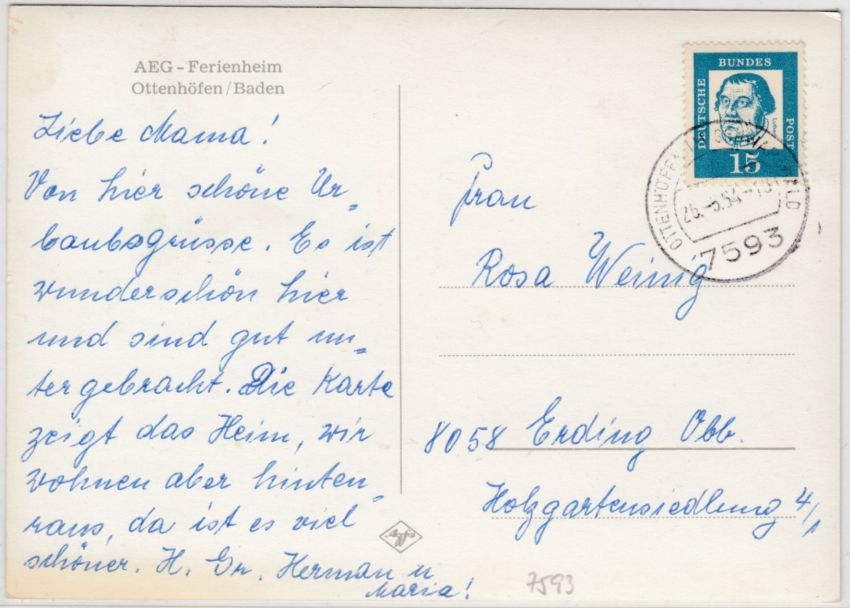 AEG - Ferienheim
Ottenhöfen / Baden
Liebe Mama!
Von hier schöne Ur-
laubsgrüsse. Es ist
wunderschön hier
und sind gut un-
tergebracht. Die Karte
zeigt das Heim, wir
wohnen aber hinten-
raus, da ist es viel
schöner. H. Gr. Herman u
Maria!
DEUTSCHE
BUNDES
POST
15
7593
Frau
Rosa Weinig
8058 Erding Obb.
Holzgartensiedlung 4/1
Agfa
7593